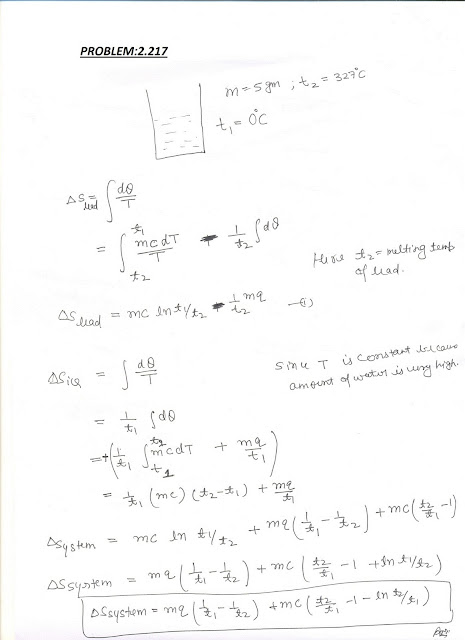 PROBLEM:2.217
m = 5gm ; t₂ = 327°C
t₁ = 0°C
ΔS_lead = ∫ dQ/T
= ∫_{t₂}^{t₁} mcdT/T - 1/t₂ ∫dQ
Here t₂ = melting temp
of lead.
ΔS_lead = mc ln t₁/t₂ - 1/t₂ mq —①
ΔS_ice = ∫ dQ/T
Since T is constant because
amount of water is very high.
= 1/t₁ ∫dQ
= +(1/t₁ ∫_{t₁}^{t₂} mcdT + mq/t₁)
= 1/t₁ (mc) (t₂-t₁) + mq/t₁
ΔSystem = mc ln t₁/t₂ + mq(1/t₁ - 1/t₂) + mc(t₂/t₁ - 1)
ΔSsystem = mq(1/t₁ - 1/t₂) + mc(t₂/t₁ - 1 + ln t₁/t₂)
ΔSsystem = mq(1/t₁ - 1/t₂) + mc(t₂/t₁ - 1 - ln t₂/t₁)